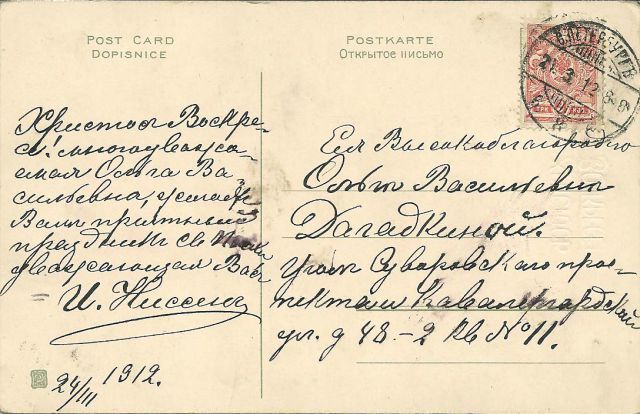 POST CARD
DOPISNICE
POSTKARTE
Открытое письмо
С.ПЕТЕРБУРГЪ
21.3.12
Христосъ Воскре-
се! многоуважа-
емая Ольга Ва
сильевна, желаю
Вамъ приятный
праздникъ св Пасхи
уважающая Васъ
И. Ниссенъ
24/III 1912.
Ея Высокоблагородию
Ольгѣ Васильевнѣ
Дагадкиной.
Уголъ Суворовскаго прос-
пекта и Кавалергардской
ул. д 48-2 кв № 11.